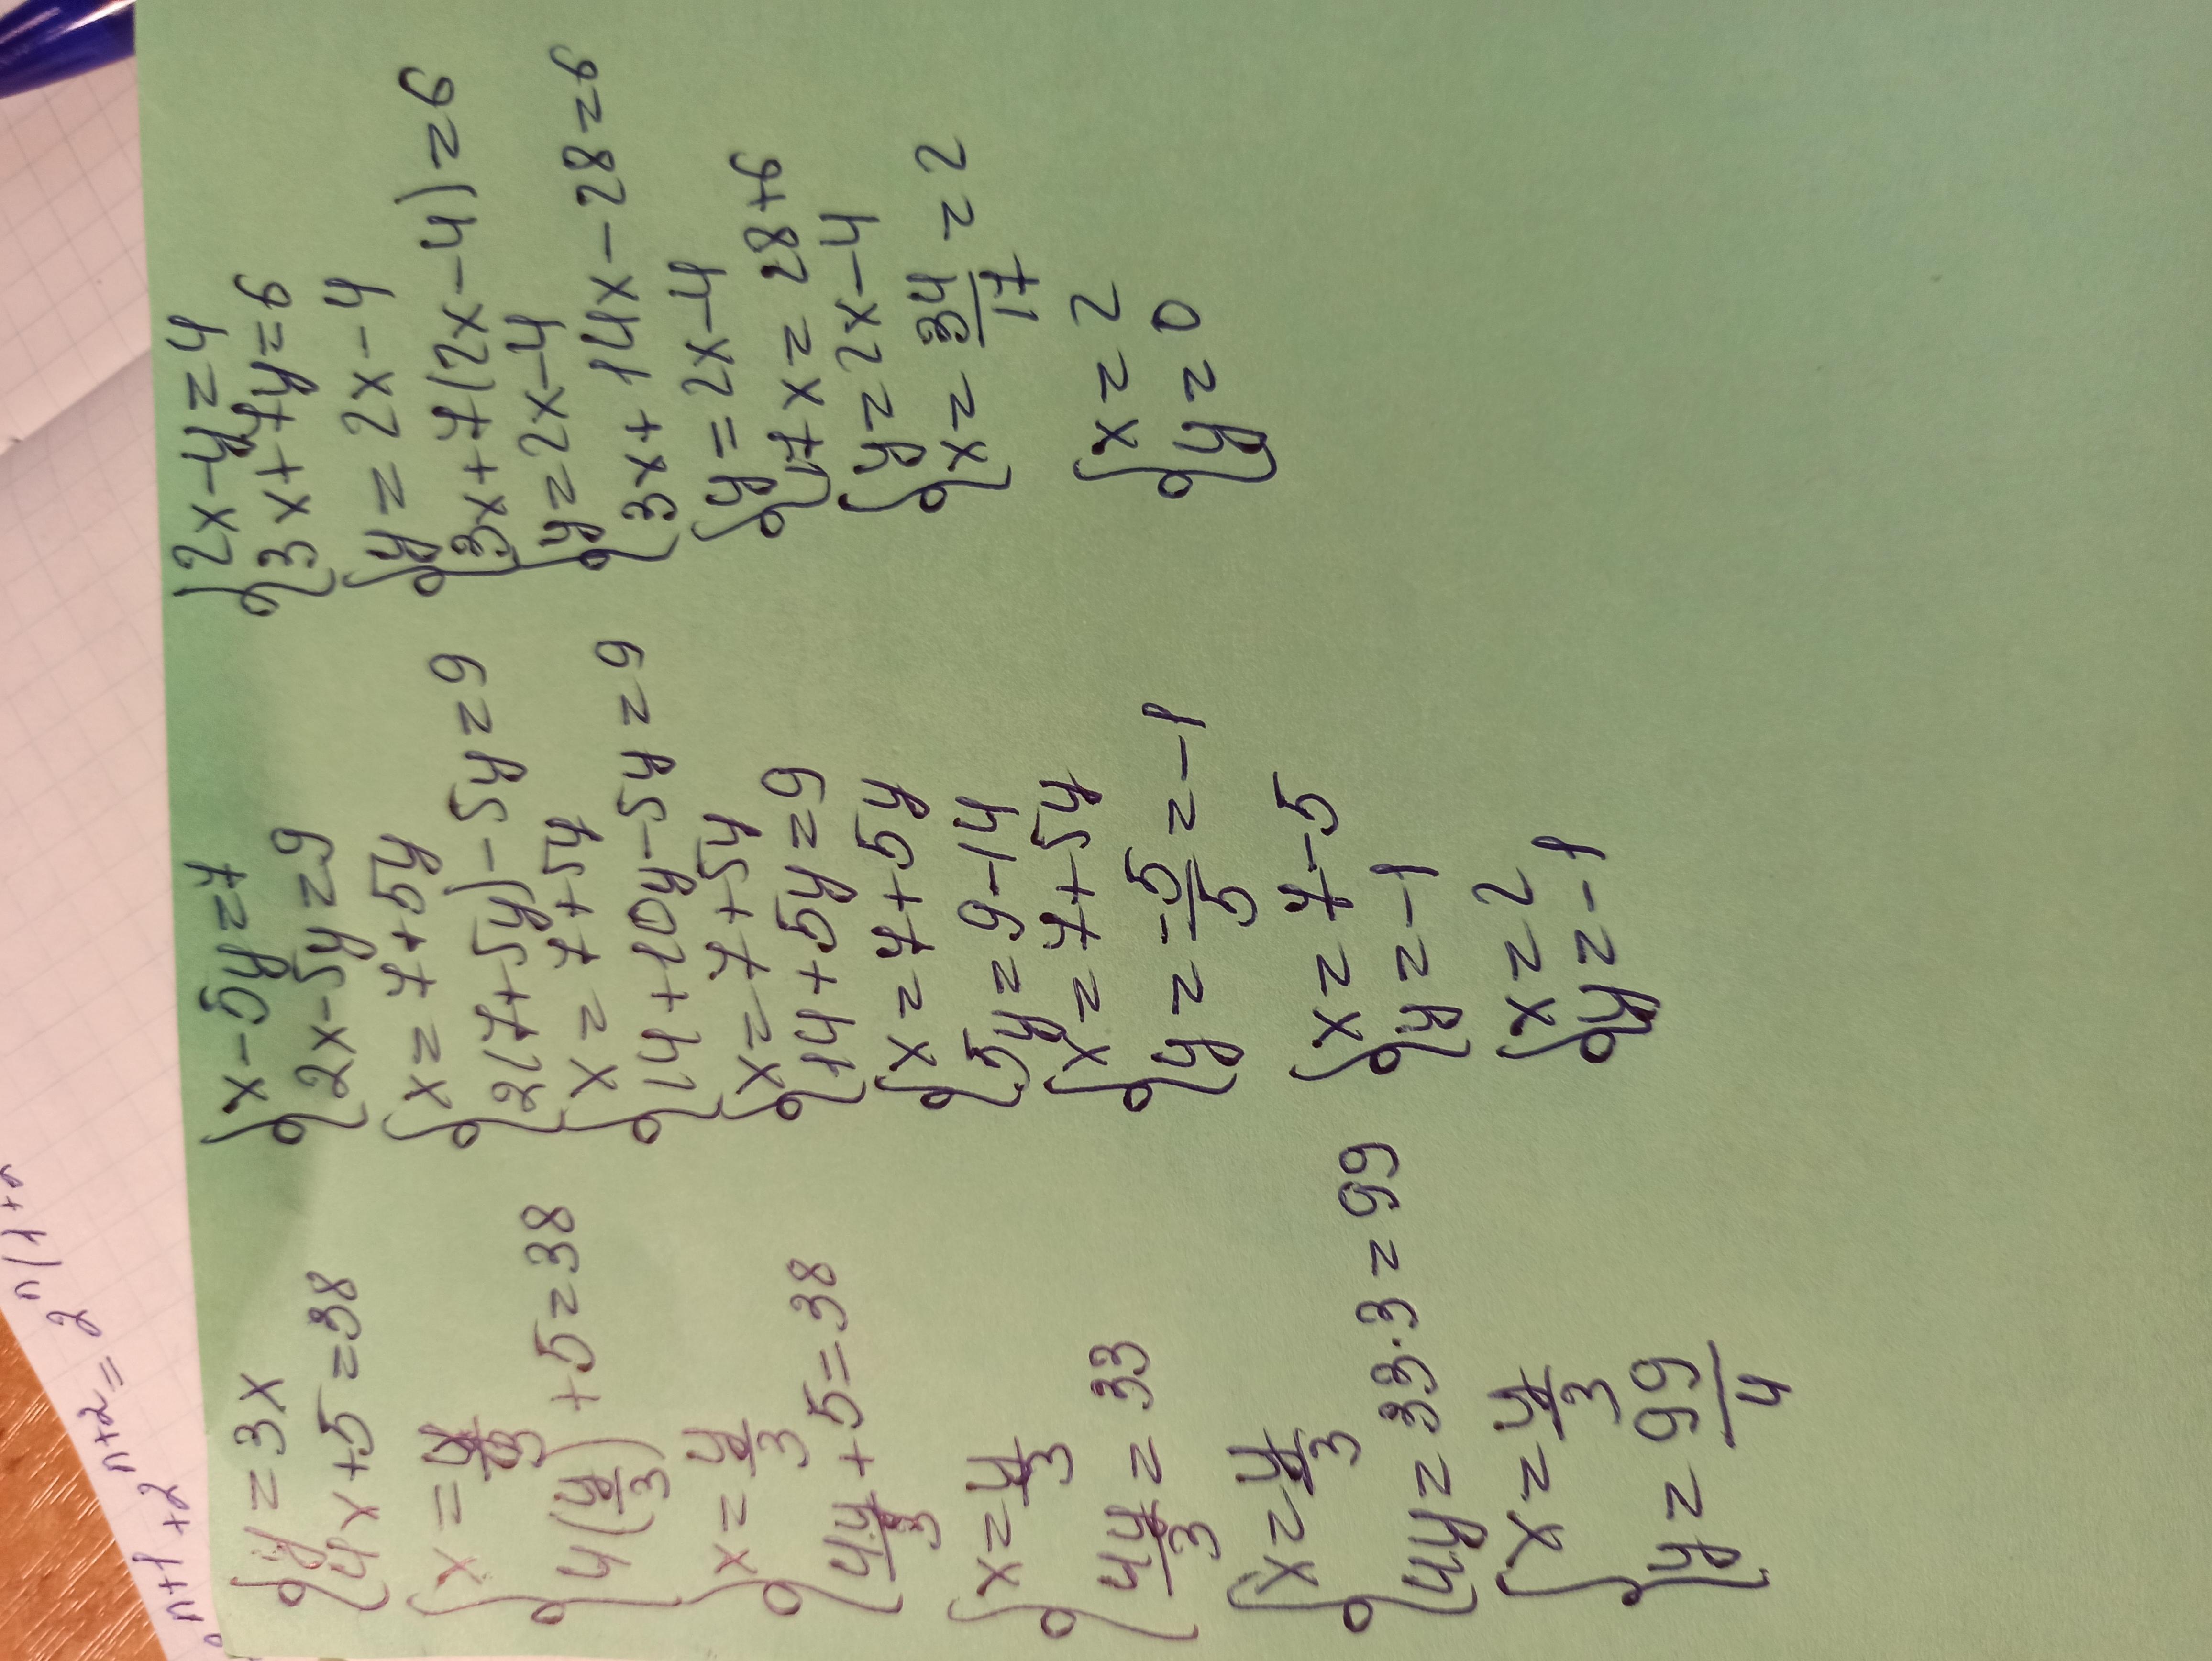 n+1 +2 n+2 = 2 n (1+
y = 3x
4x+5=38
x = y/3
4(y/3) +5=38
x = y/3
4y/3 +5=38
x=y/3
4y/3 = 33
x=y/3
4y=33·3=99
x=y/3
y=99/4
x-5y=7
2x-5y=9
x=7+5y
2(7+5y)-5y=9
x=7+5y
14+10y-5y=9
x=7+5y
14+5y=9
x=7+5y
5y=9-14
x=7+5y
y=-5/5=-1
x=7-5
y=-1
x=2
y=-1
2x-y=4
3x+7y=6
y=2x-4
3x+7(2x-4)=6
y=2x-4
3x+14x-28=6
y=2x-4
17x=28+6
y=2x-4
x=34/17=2
x=2
y=0